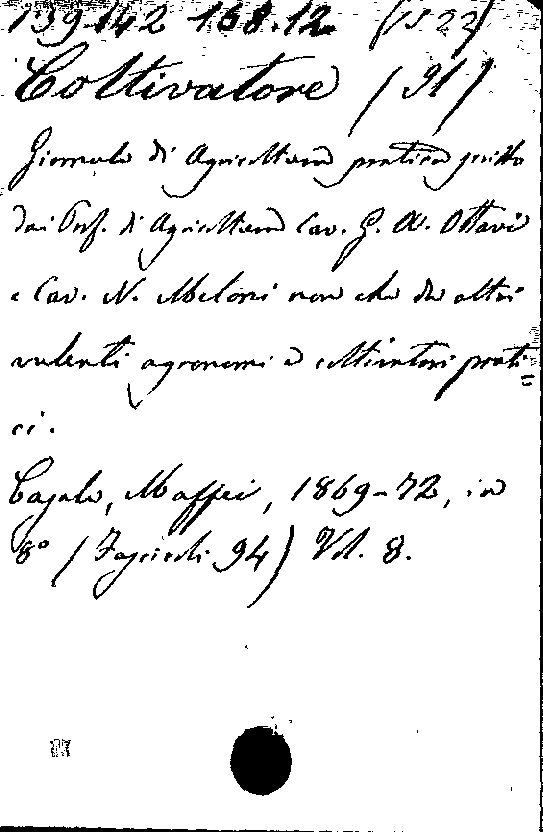 139-142 168.12. (1522)
Coltivatore (Il)
Giornale di Agricoltura pratica scritto
dai Prof. di Agricoltura Cav. G. A. Ottavi
e Cav. N. Meloni non che da altri
valenti agronomi e coltivatori prati=
ci.
Casale, Maffei, 1869-72, in
8º (Fascicoli 94) Vol. 8.